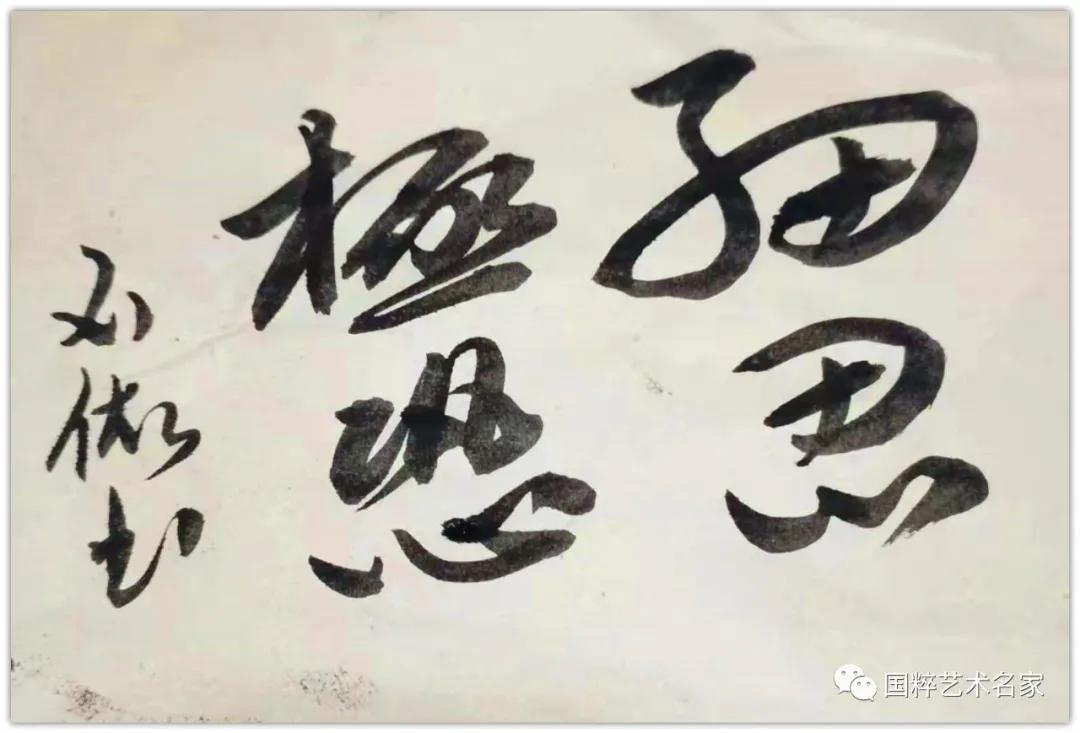 細思
極恐
不做书
国粹艺术名家